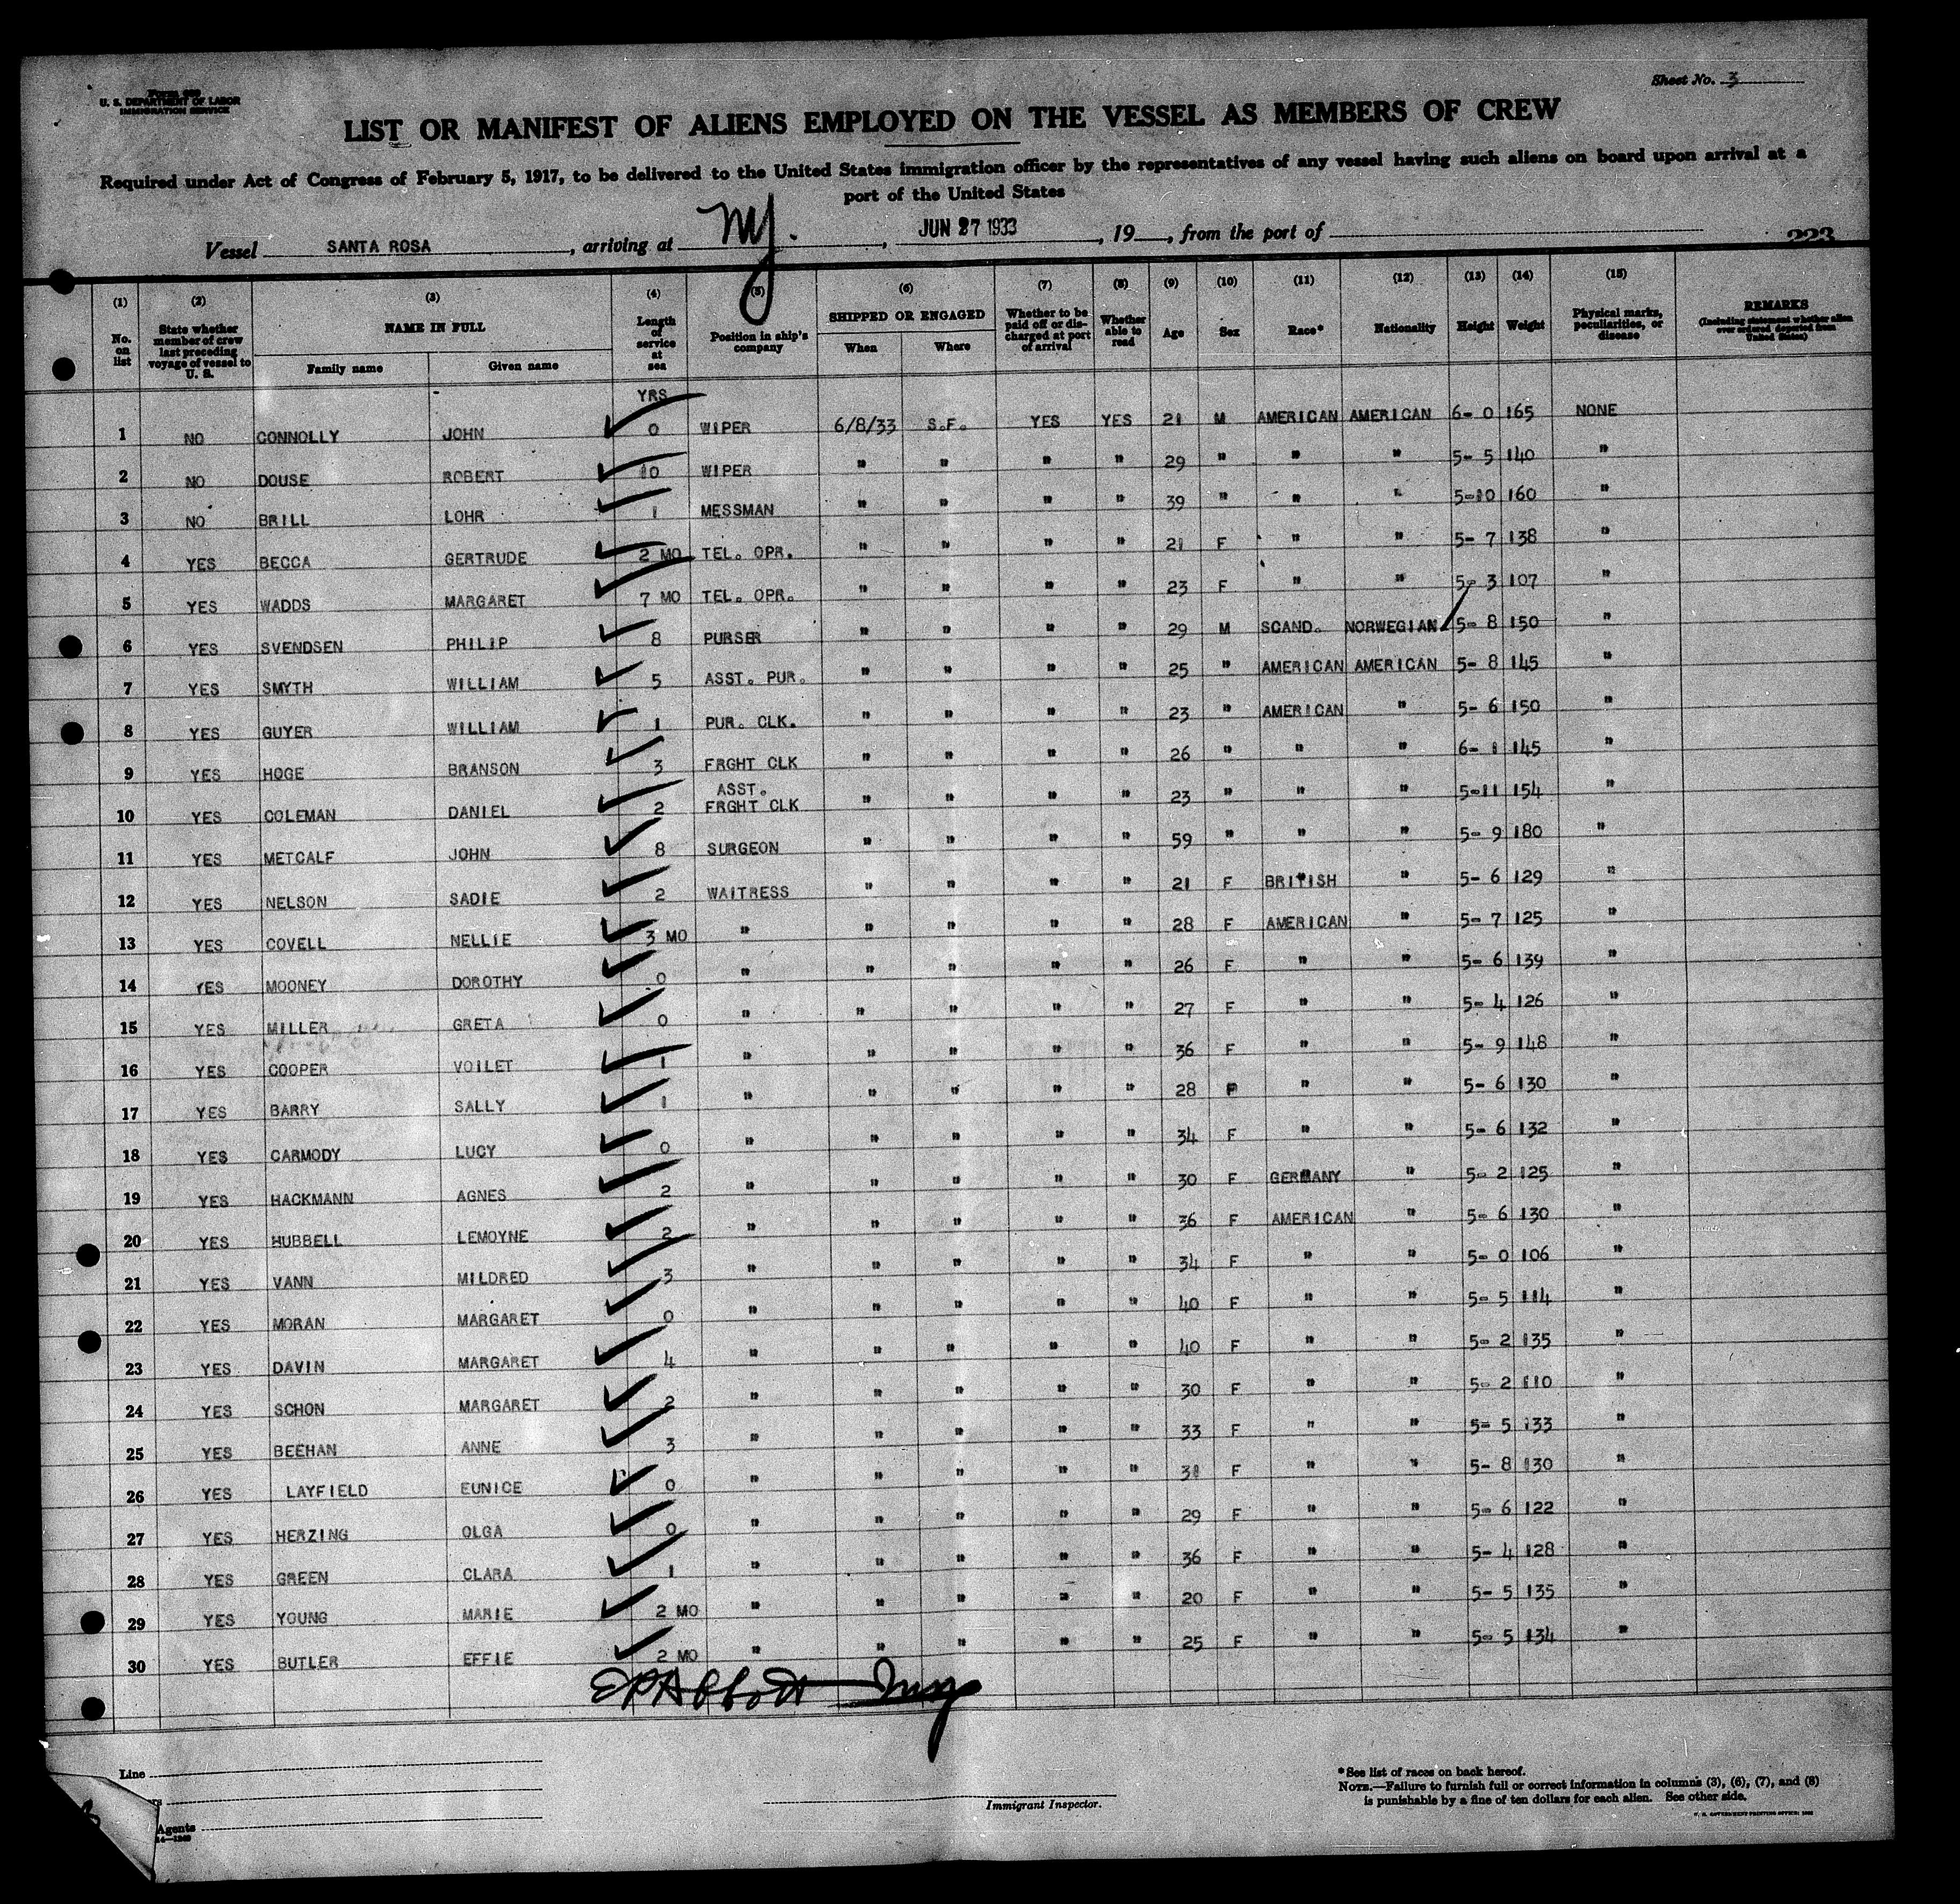 Sheet No. 3
Form 689
U. S. DEPARTMENT OF LABOR
IMMIGRATION SERVICE
LIST OR MANIFEST OF ALIENS EMPLOYED ON THE VESSEL AS MEMBERS OF CREW
Required under Act of Congress of February 5, 1917, to be delivered to the United States immigration officer by the representatives of any vessel having such aliens on board upon arrival at a
port of the United States
Vessel SANTA ROSA, arriving at NY., JUN 27 1933, 19, from the port of
223
(1) (2) (3) (4) (5) (6) (7) (8) (9) (10) (11) (12) (13) (14) (15)
No. on list | State whether member of crew last preceding voyage of vessel to U. S. | NAME IN FULL | Family name | Given name | Length of service at sea | Position in ship's company | SHIPPED OR ENGAGED | When | Where | Whether to be paid off or discharged at port of arrival | Whether able to read | Age | Sex | Race* | Nationality | Height | Weight | Physical marks, peculiarities, or disease | REMARKS (Including statement whether alien ever ordered deported from United States)
YRS
1 NO CONNOLLY JOHN 0 WIPER 6/8/33 S.F. YES YES 21 M AMERICAN AMERICAN 6- 0 165 NONE
2 NO DOUSE ROBERT 10 WIPER " " " " 29 " " " 5- 5 140 "
3 NO BRILL LOHR 1 MESSMAN " " " " 39 " " " 5-10 160 "
4 YES BECCA GERTRUDE 2 MO TEL. OPR. " " " " 21 F " " 5- 7 138 "
5 YES WADDS MARGARET 7 MO TEL. OPR. " " " " 23 F " " 5- 3 107 "
6 YES SVENDSEN PHILIP 8 PURSER " " " " 29 M SCAND. NORWEGIAN 5- 8 150 "
7 YES SMYTH WILLIAM 5 ASST. PUR. " " " " 25 " AMERICAN AMERICAN 5- 8 145 "
8 YES GUYER WILLIAM 1 PUR. CLK. " " " " 23 " AMERICAN " 5- 6 150 "
9 YES HOGE BRANSON 3 FRGHT CLK " " " " 26 " " " 6- 1 145 "
10 YES COLEMAN DANIEL 2 ASST. FRGHT CLK " " " " 23 " " " 5-11 154 "
11 YES METCALF JOHN 8 SURGEON " " " " 59 " " " 5- 9 180 "
12 YES NELSON SADIE 2 WAITRESS " " " " 21 F BRITISH " 5- 6 129 "
13 YES COVELL NELLIE 3 MO " " " " " 28 F AMERICAN " 5- 7 125 "
14 YES MOONEY DOROTHY 0 " " " " " 26 F " " 5- 6 139 "
15 YES MILLER GRETA 0 " " " " " 27 F " " 5- 4 126 "
16 YES COOPER VOILET 1 " " " " " 36 F " " 5- 9 148 "
17 YES BARRY SALLY 1 " " " " " 28 F " " 5- 6 130 "
18 YES CARMODY LUCY 0 " " " " " 34 F " " 5- 6 132 "
19 YES HACKMANN AGNES 2 " " " " " 30 F GERMANY " 5- 2 125 "
20 YES HUBBELL LEMOYNE 2 " " " " " 36 F AMERICAN " 5- 6 130 "
21 YES VANN MILDRED 3 " " " " " 34 F " " 5- 0 106 "
22 YES MORAN MARGARET 0 " " " " " 40 F " " 5- 5 114 "
23 YES DAVIN MARGARET 4 " " " " " 40 F " " 5- 2 135 "
24 YES SCHON MARGARET 2 " " " " " 30 F " " 5- 2 110 "
25 YES BEEHAN ANNE 3 " " " " " 33 F " " 5- 5 133 "
26 YES LAYFIELD EUNICE 0 " " " " " 31 F " " 5- 8 130 "
27 YES HERZING OLGA 0 " " " " " 29 F " " 5- 6 122 "
28 YES GREEN CLARA 1 " " " " " 36 F " " 5- 4 128 "
29 YES YOUNG MARIE 2 MO " " " " " 20 F " " 5- 5 135 "
30 YES BUTLER EFFIE 2 MO " " " " " 25 F " " 5- 5 134 "
EPAbbott Insp
Line
Agents
14—1240
Immigrant Inspector.
*See list of races on back hereof.
NOTE.—Failure to furnish full or correct information in columns (3), (6), (7), and (8)
is punishable by a fine of ten dollars for each alien. See other side.